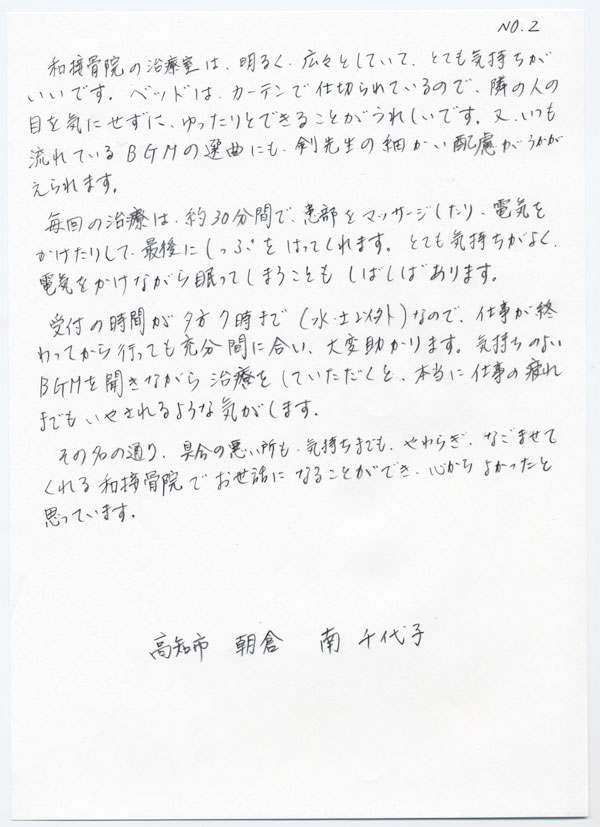 NO.2
和接骨院の治療室は、明るく、広々としていて、とても気持ちが
いいです。ベッドは、カーテンで仕切られているので、隣の人の
目を気にせずに、ゆったりとできることがうれしいです。又、いつも
流れているBGMの選曲にも、剣先生の細かい配慮がうかが
えられます。
毎回の治療は、約30分間で、患部をマッサージしたり、電気を
かけたりして、最後にしっぷをはってくれます。とても気持ちがよく、
電気をかけながら眠ってしまうこともしばしばあります。
受付の時間が夕方7時まで(水・土以外)なので、仕事が終
わってから行っても充分間に合い、大変助かります。気持ちのよい
BGMを聞きながら治療をしていただくと、本当に仕事の疲れ
までもいやされるような気がします。
その名の通り、具合の悪い所も、気持ちまでも、やわらぎ、なごませて
くれる和接骨院でお世話になることができ、心からよかったと
思っています。
高知市 朝倉 南 千代子